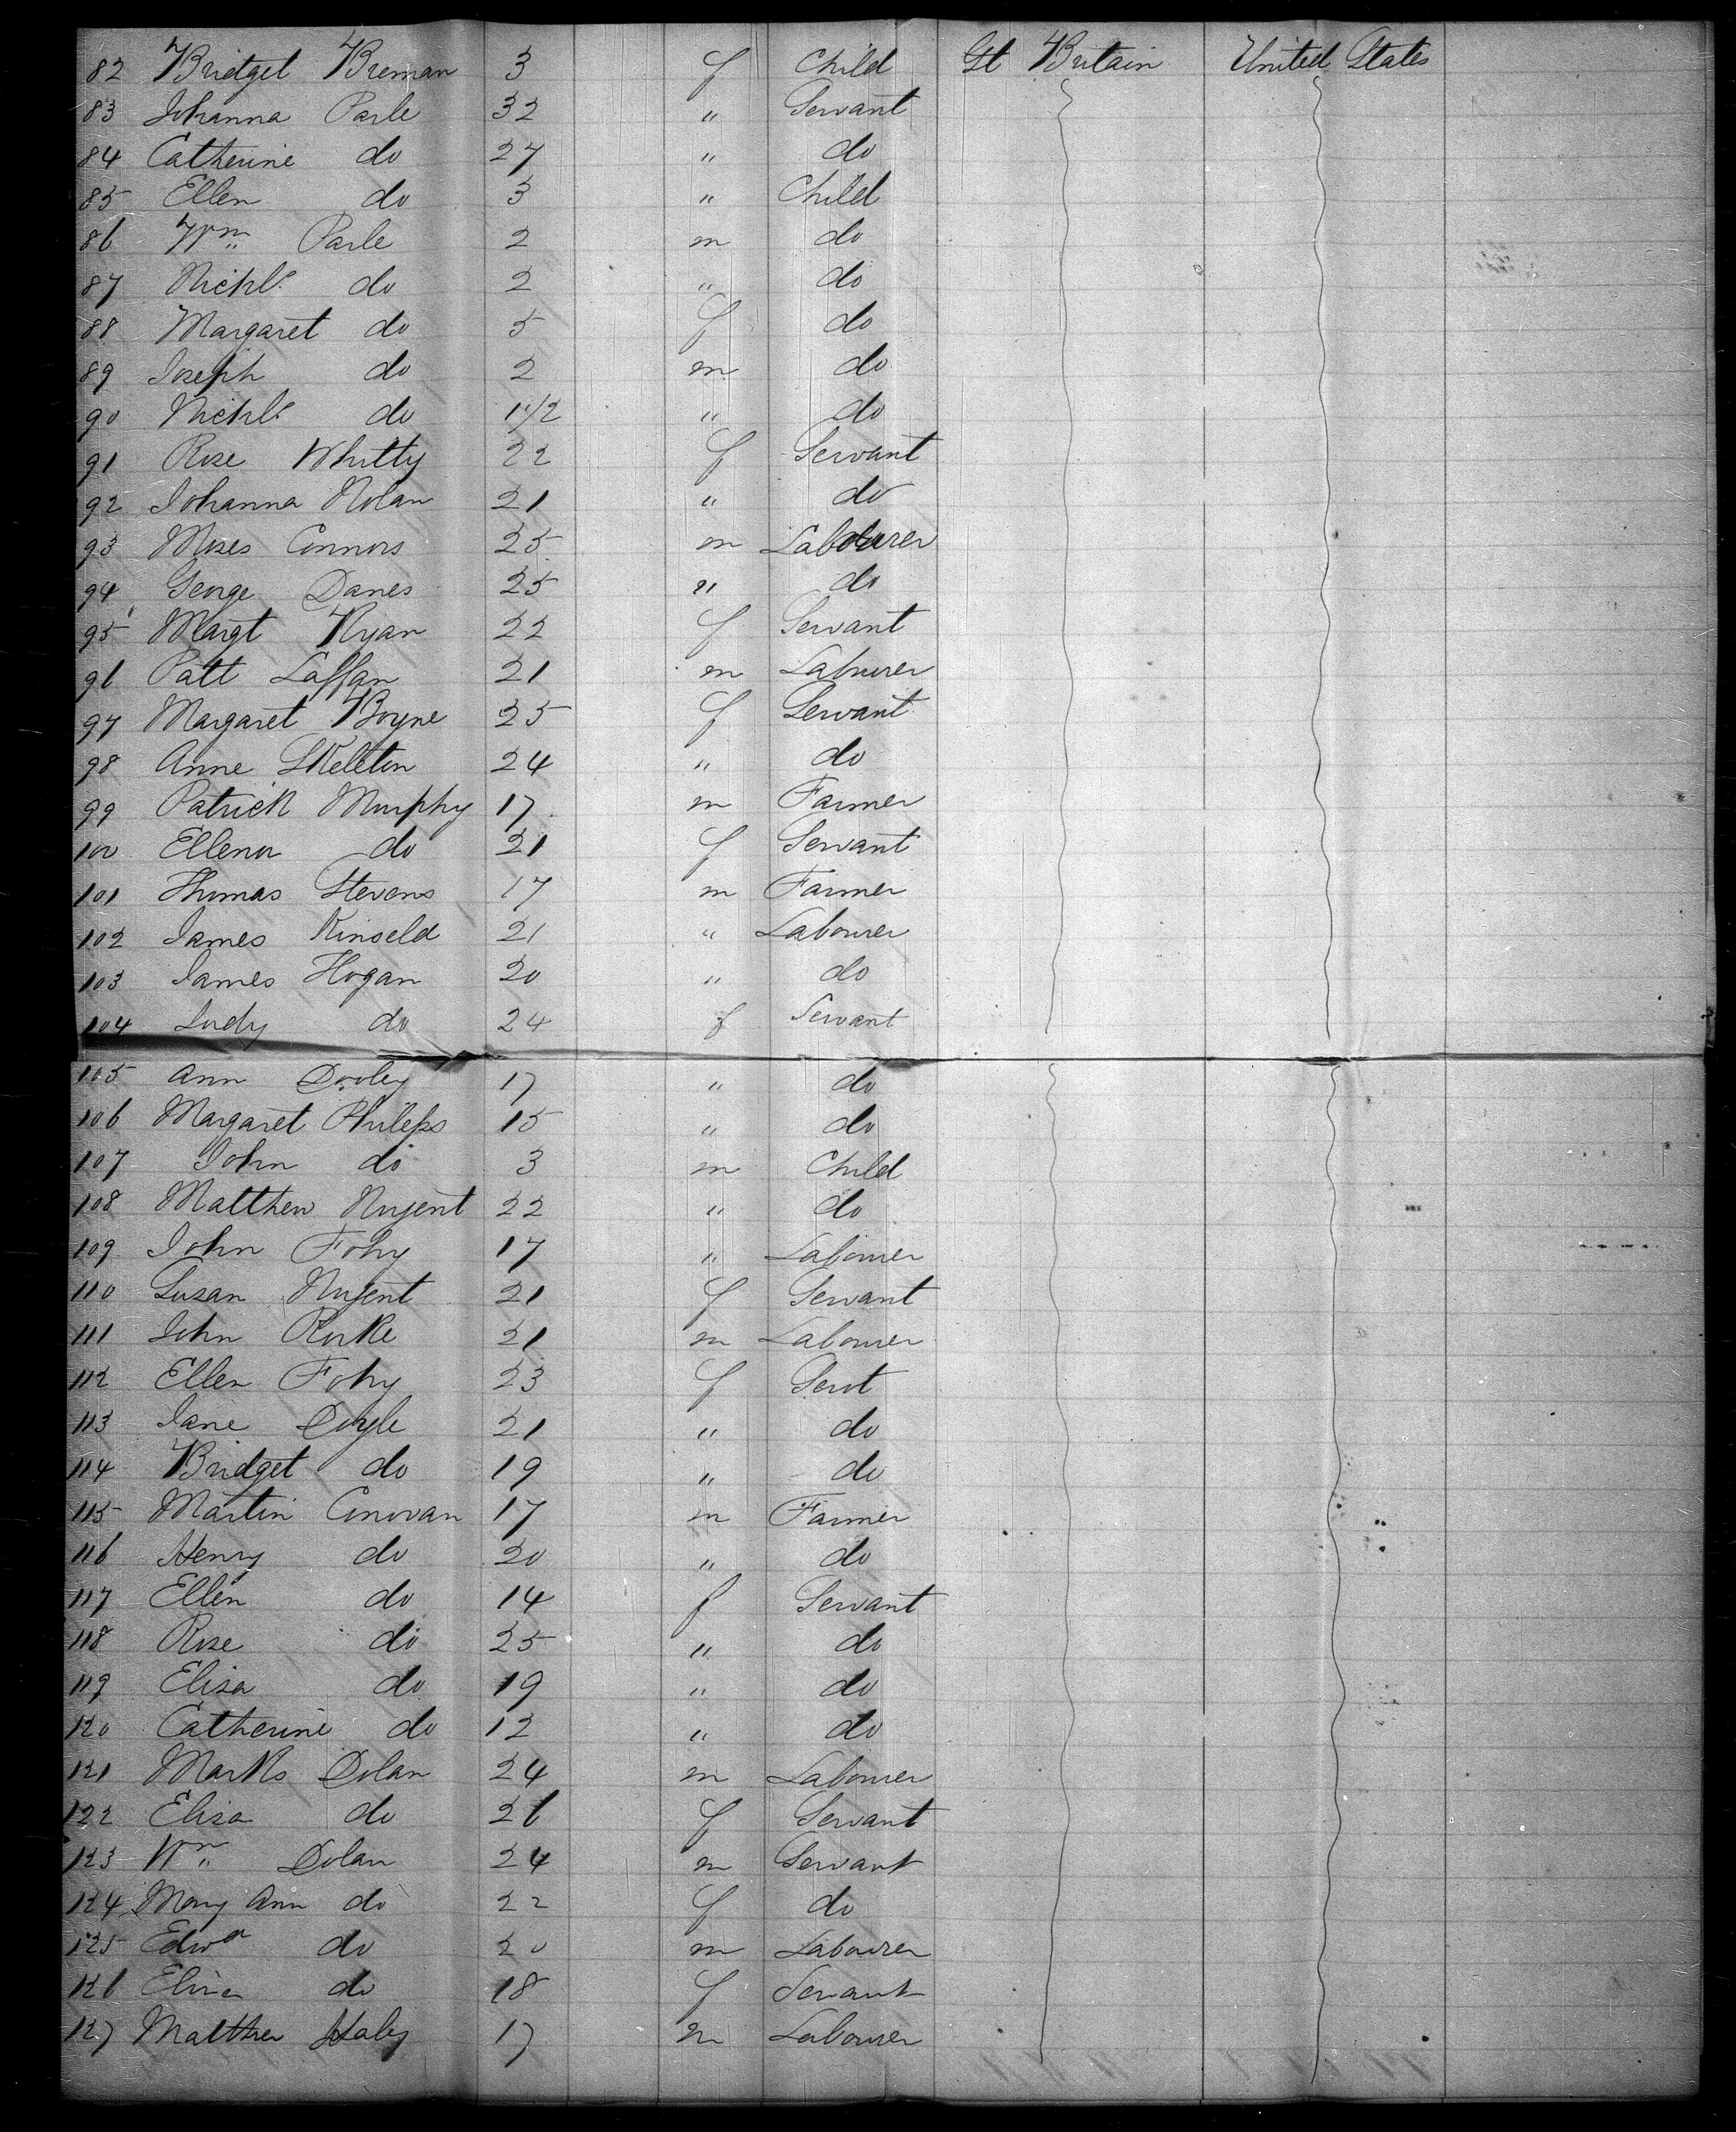 82 Bridget Brennan 3 f Child Gt Britain United States
83 Johanna Parle 32 " Servant
84 Catherine do 27 " do
85 Ellen do 3 " Child
86 Wm Parle 2 m do
87 Nichls do 2 " do
88 Margaret do 5 f do
89 Joseph do 2 m do
90 Nichls do 1 1/2 " do
91 Rose Whitty 22 f Servant
92 Johanna Nolan 21 " do
93 Moses Connors 25 m Labourer
94 George Danes 25 " do
95 Margt Ryan 22 f Servant
96 Patt Laffan 21 m Labourer
97 Margaret Boyne 25 f Servant
98 Anne Skeleton 24 " do
99 Patrick Murphy 17 m Farmer
100 Ellenor do 21 f Servant
101 Thomas Stevens 17 m Farmer
102 James Kinseld 21 " Labourer
103 James Hogan 20 " do
104 Judy do 24 f Servant
105 Ann Dooley 17 " do
106 Margaret Phileps 15 " do
107 John do 3 m Child
108 Matthew Nugent 22 " do
109 John Fohy 17 " Labourer
110 Susan Nugent 21 f Servant
111 John Rorke 21 m Labourer
112 Ellen Fohy 23 f Servt
113 Jane Doyle 21 " do
114 Bridget do 19 " do
115 Martin Conovan 17 m Farmer
116 Henry do 20 " do
117 Ellen do 14 f Servant
118 Rose do 25 " do
119 Elisa do 19 " do
120 Catherine do 12 " do
121 Marks Dolan 24 m Labourer
122 Elisa do 26 f Servant
123 Wm Dolan 24 m Servant
124 Mary Ann do 22 f do
125 Edwd do 20 m Labourer
126 do 18 f Servant
127 Matthew Haley 17 m Labourer